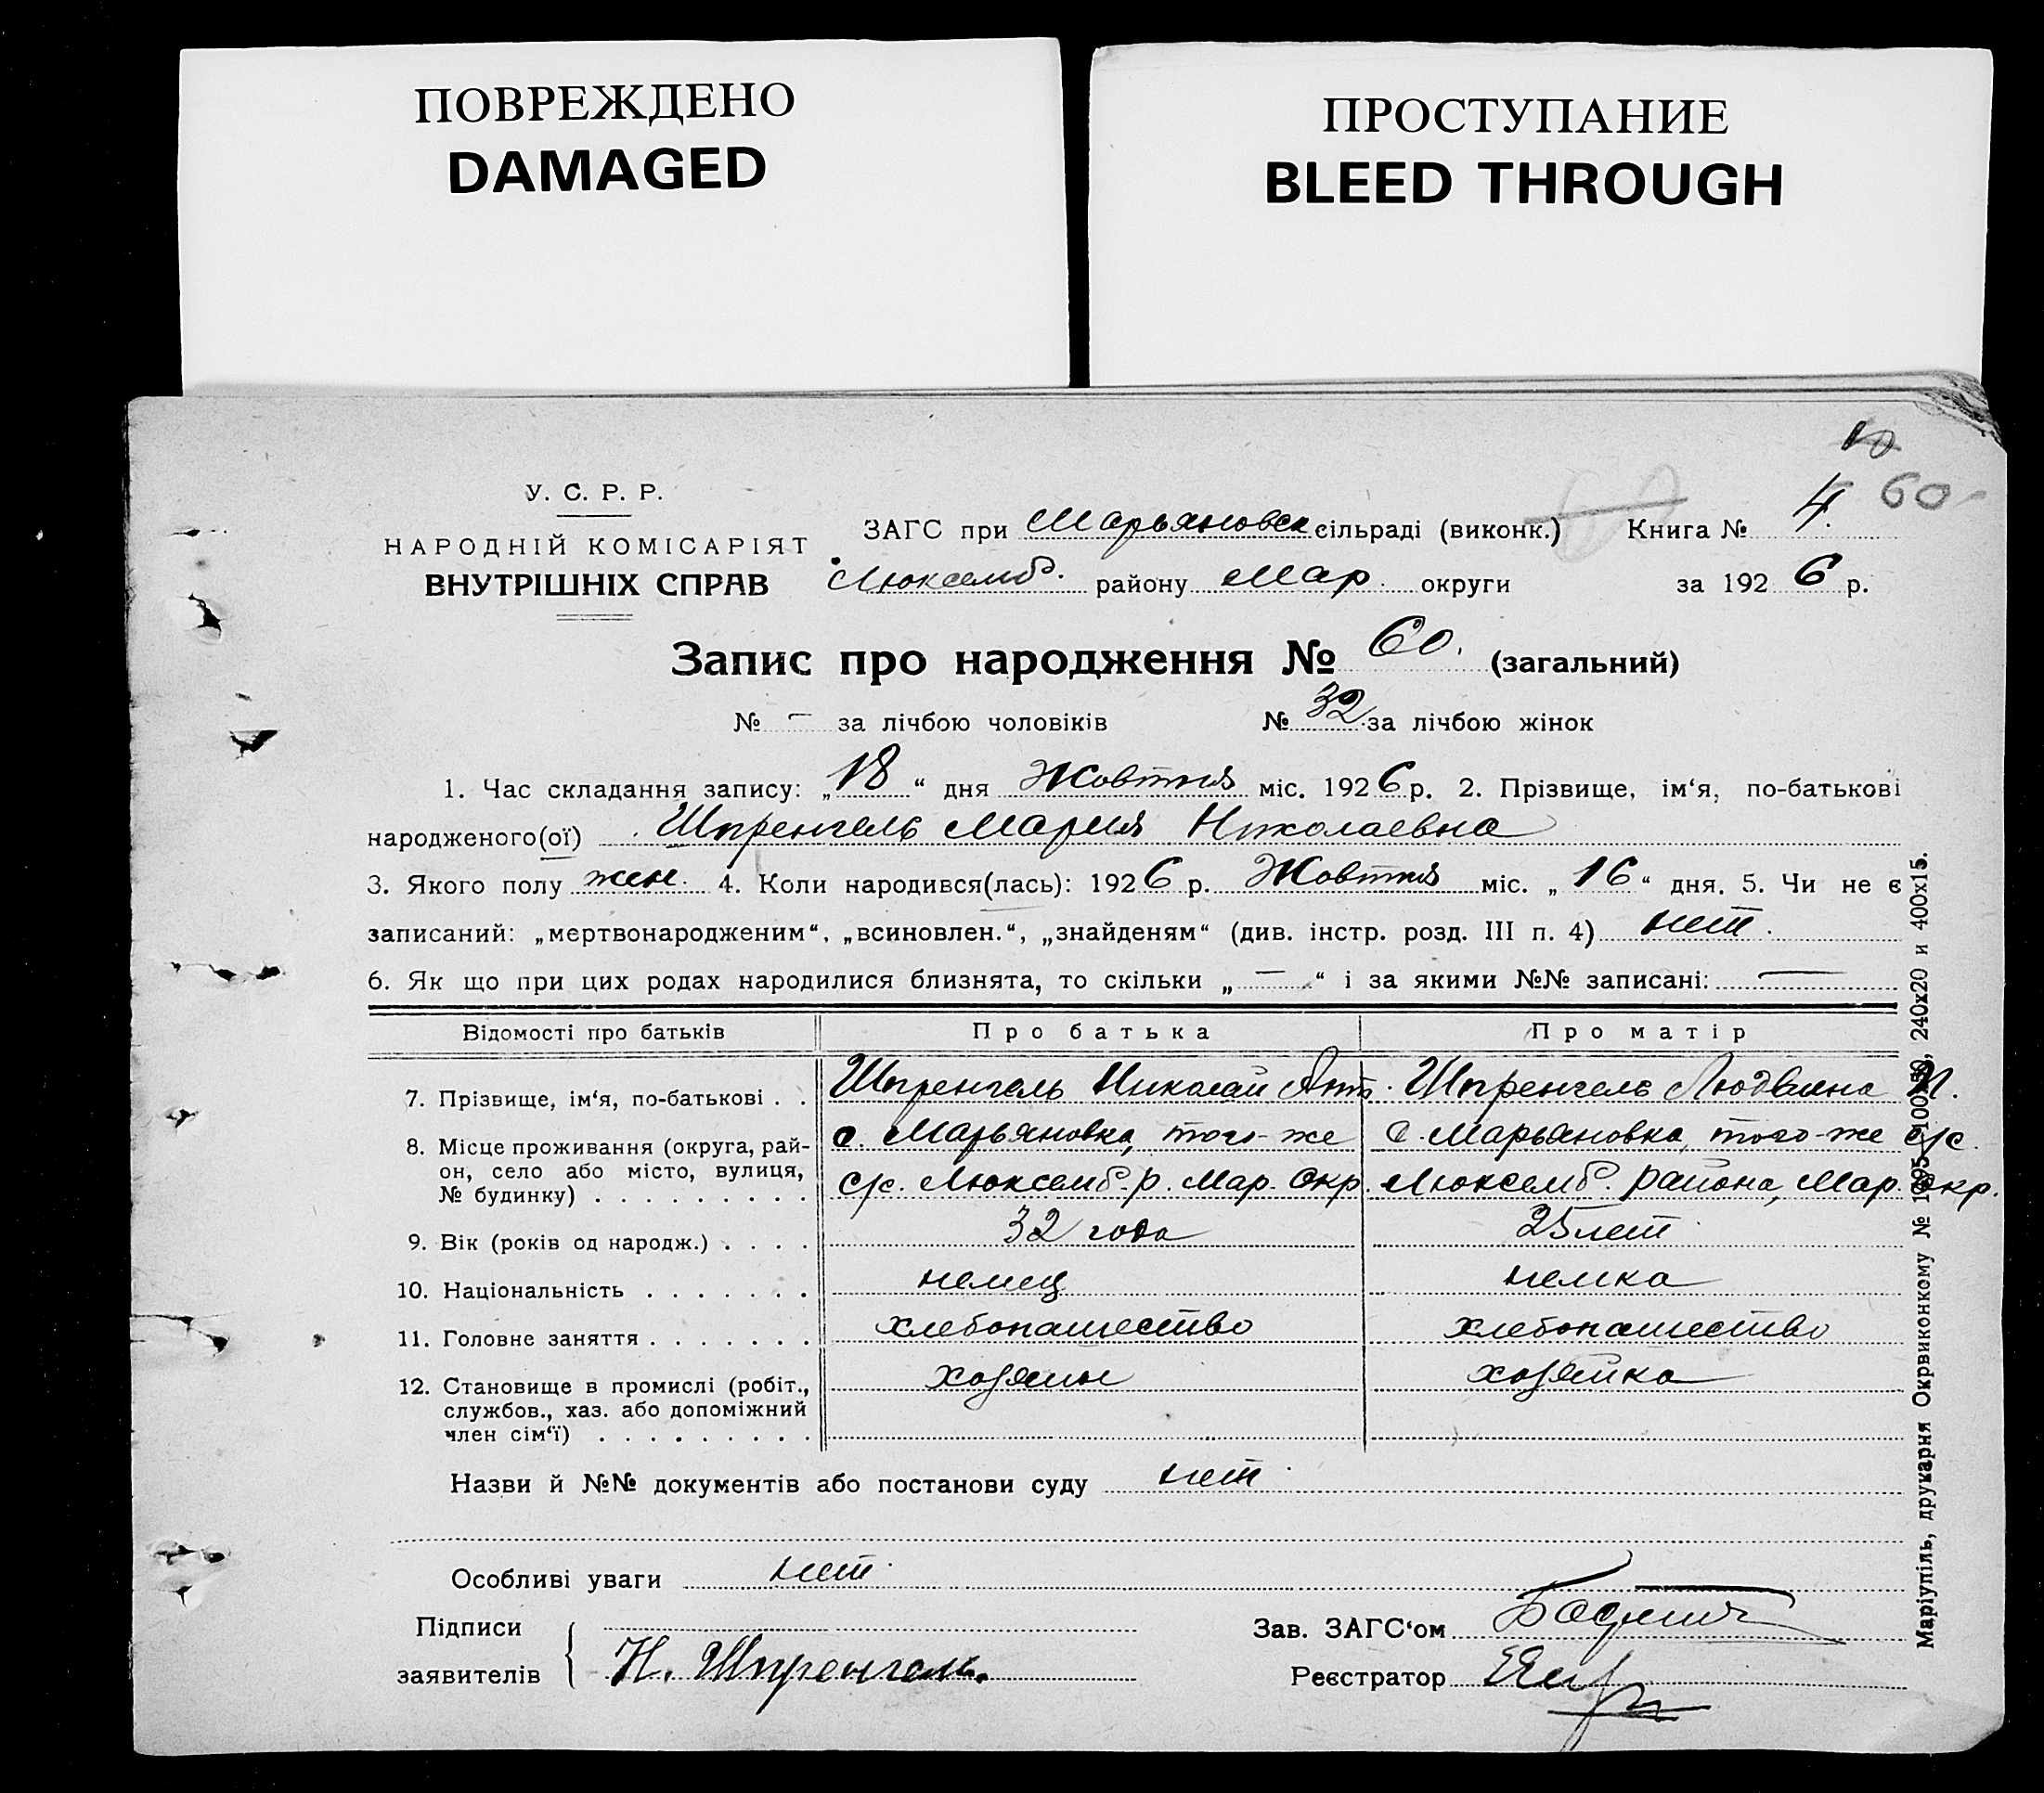 ПОВРЕЖДЕНО
DAMAGED
ПРОСТУПАНИЕ
BLEED THROUGH
60
У. С. Р. Р.
НАРОДНІЙ КОМІСАРІЯТ
ВНУТРІШНІХ СПРАВ
ЗАГС при Марьяновск сільраді (виконк.) Книга № 4.
Люксемб. району Мар. округи за 1926 р.
Запис про народження № 60. (загальний)
№ — за лічбою чоловіків № 32 за лічбою жінок
1. Час складання запису: „18“ дня Жовтня міс. 1926 р. 2. Прізвище, ім‘я, по-батькові
народженого(ої) Шпренгель Мария Николаевна
3. Якого полу жен. 4. Коли народився(лась): 1926 р. Жовтня міс. „16“ дня. 5. Чи не є
записаний: „мертвонародженим“, „всиновлен.“, „знайденям“ (див. інстр. розд. III п. 4) нет.
6. Як що при цих родах народилися близнята, то скільки „—“ і за якими №№ записані: —
Відомості про батьків Про батька Про матір
7. Прізвище, ім‘я, по-батькові . . Шпренгель Николай Ант. Шпренгель Людвина П.
8. Місце проживання (округа, рай-
он, село або місто, вулиця,
№ будинку) . . . . . . . . .
с. Марьяновка, того-же
с/с. Люксемб. р. Мар. Окр.
с. Марьяновка, того-же с/с.
Люксемб. района, Мар. окр.
9. Вік (років од народж.) . . . . 32 года 25 лет
10. Національність . . . . . . . немец немка
11. Головне заняття . . . . . . . хлебопашество хлебопашество
12. Становище в промислі (робіт.,
службов., хаз. або допоміжний
член сім‘ї) . . . . . . . . .
хозяин хозяйка
Назви й №№ документів або постанови суду нет.
Особливі уваги нет.
Підписи
заявителів
Н. Шпренгель.
Зав. ЗАГС‘ом
Реєстратор
Маріупіль, друкарня Окрвиконкому № 1095—100х50, 240х20 и 400х15.